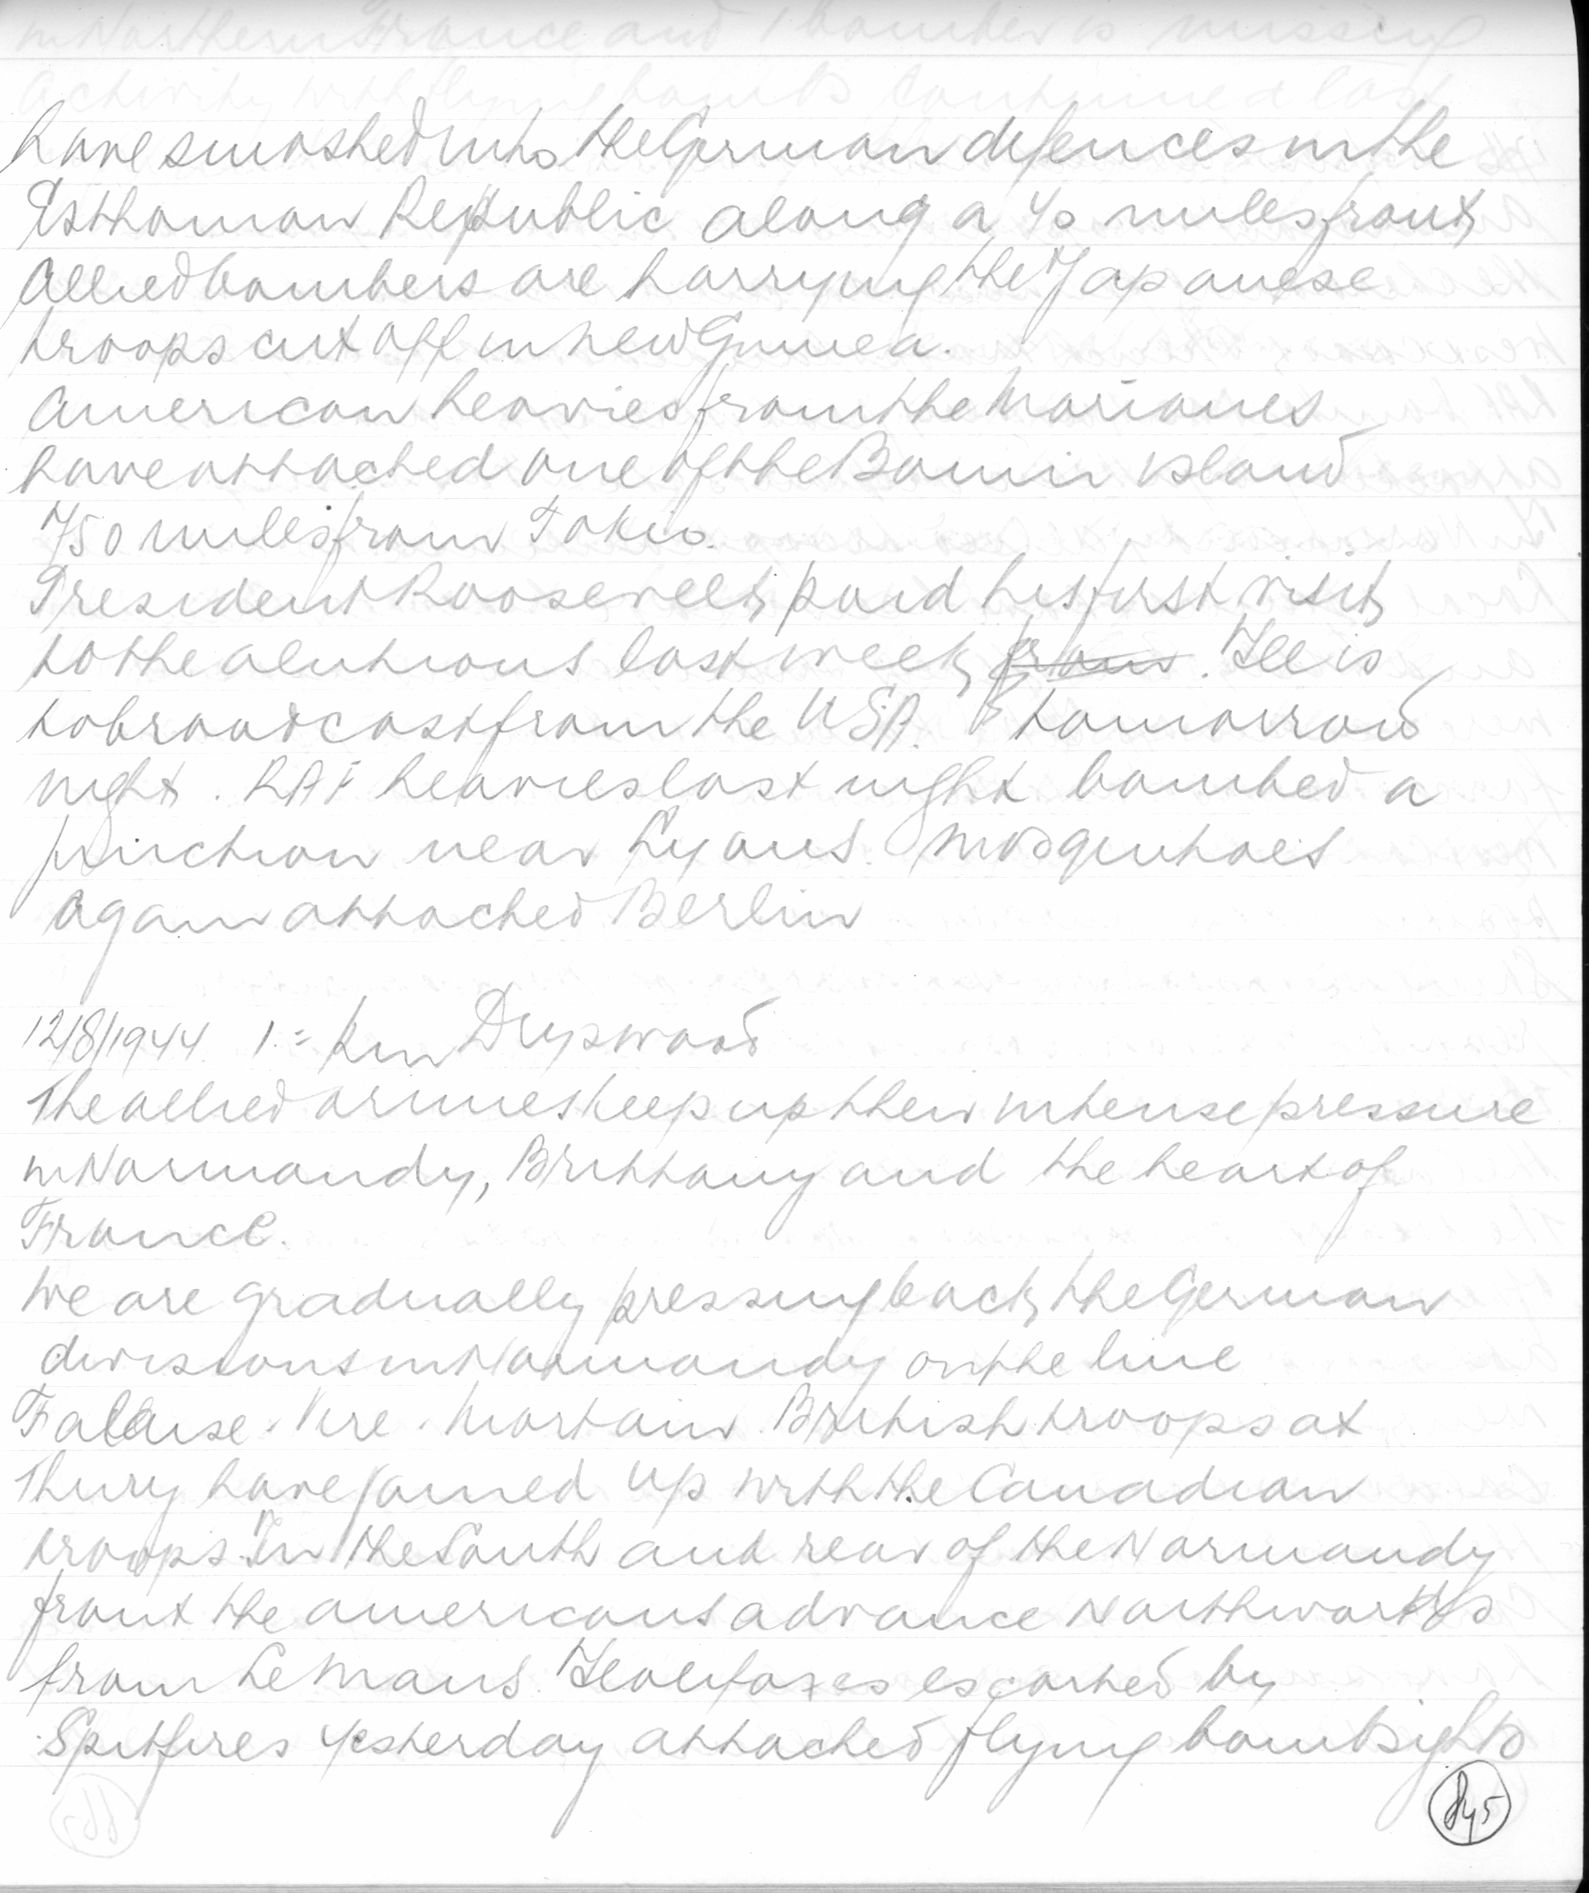 have smashed into the German defences in the
Esthonian Republic along a 40 miles front,
Allied bombers are harrying the Japanese
troops cut off in New Guinea.
American heavies from the Marianes
have attacked one of the Bonin island
750 miles from Tokio.
President Roosevelt, paid his first visit,
to the Aleutians last week, from. He is
to broadcast from the USA. tomorrow
night. RAF heavies last night bombed a
junction near Lyons. Mosquitoes
again attacked Berlin
12/8/1944 1 =
The allied armies keep up their intense pressure
in Normandy, Brittany and the heart of
France.
We are gradually pressing back, the German
divisions in Normandy on the line
Falaise. Vire. Mortain. British troops at
Thury have joined up with the Canadian
troops. In the South and rear of the Normandy
front the Americans advance Northwards
from Le Mans. Halifaxes escorted by
Spitfires yesterday attacked flying bombsights